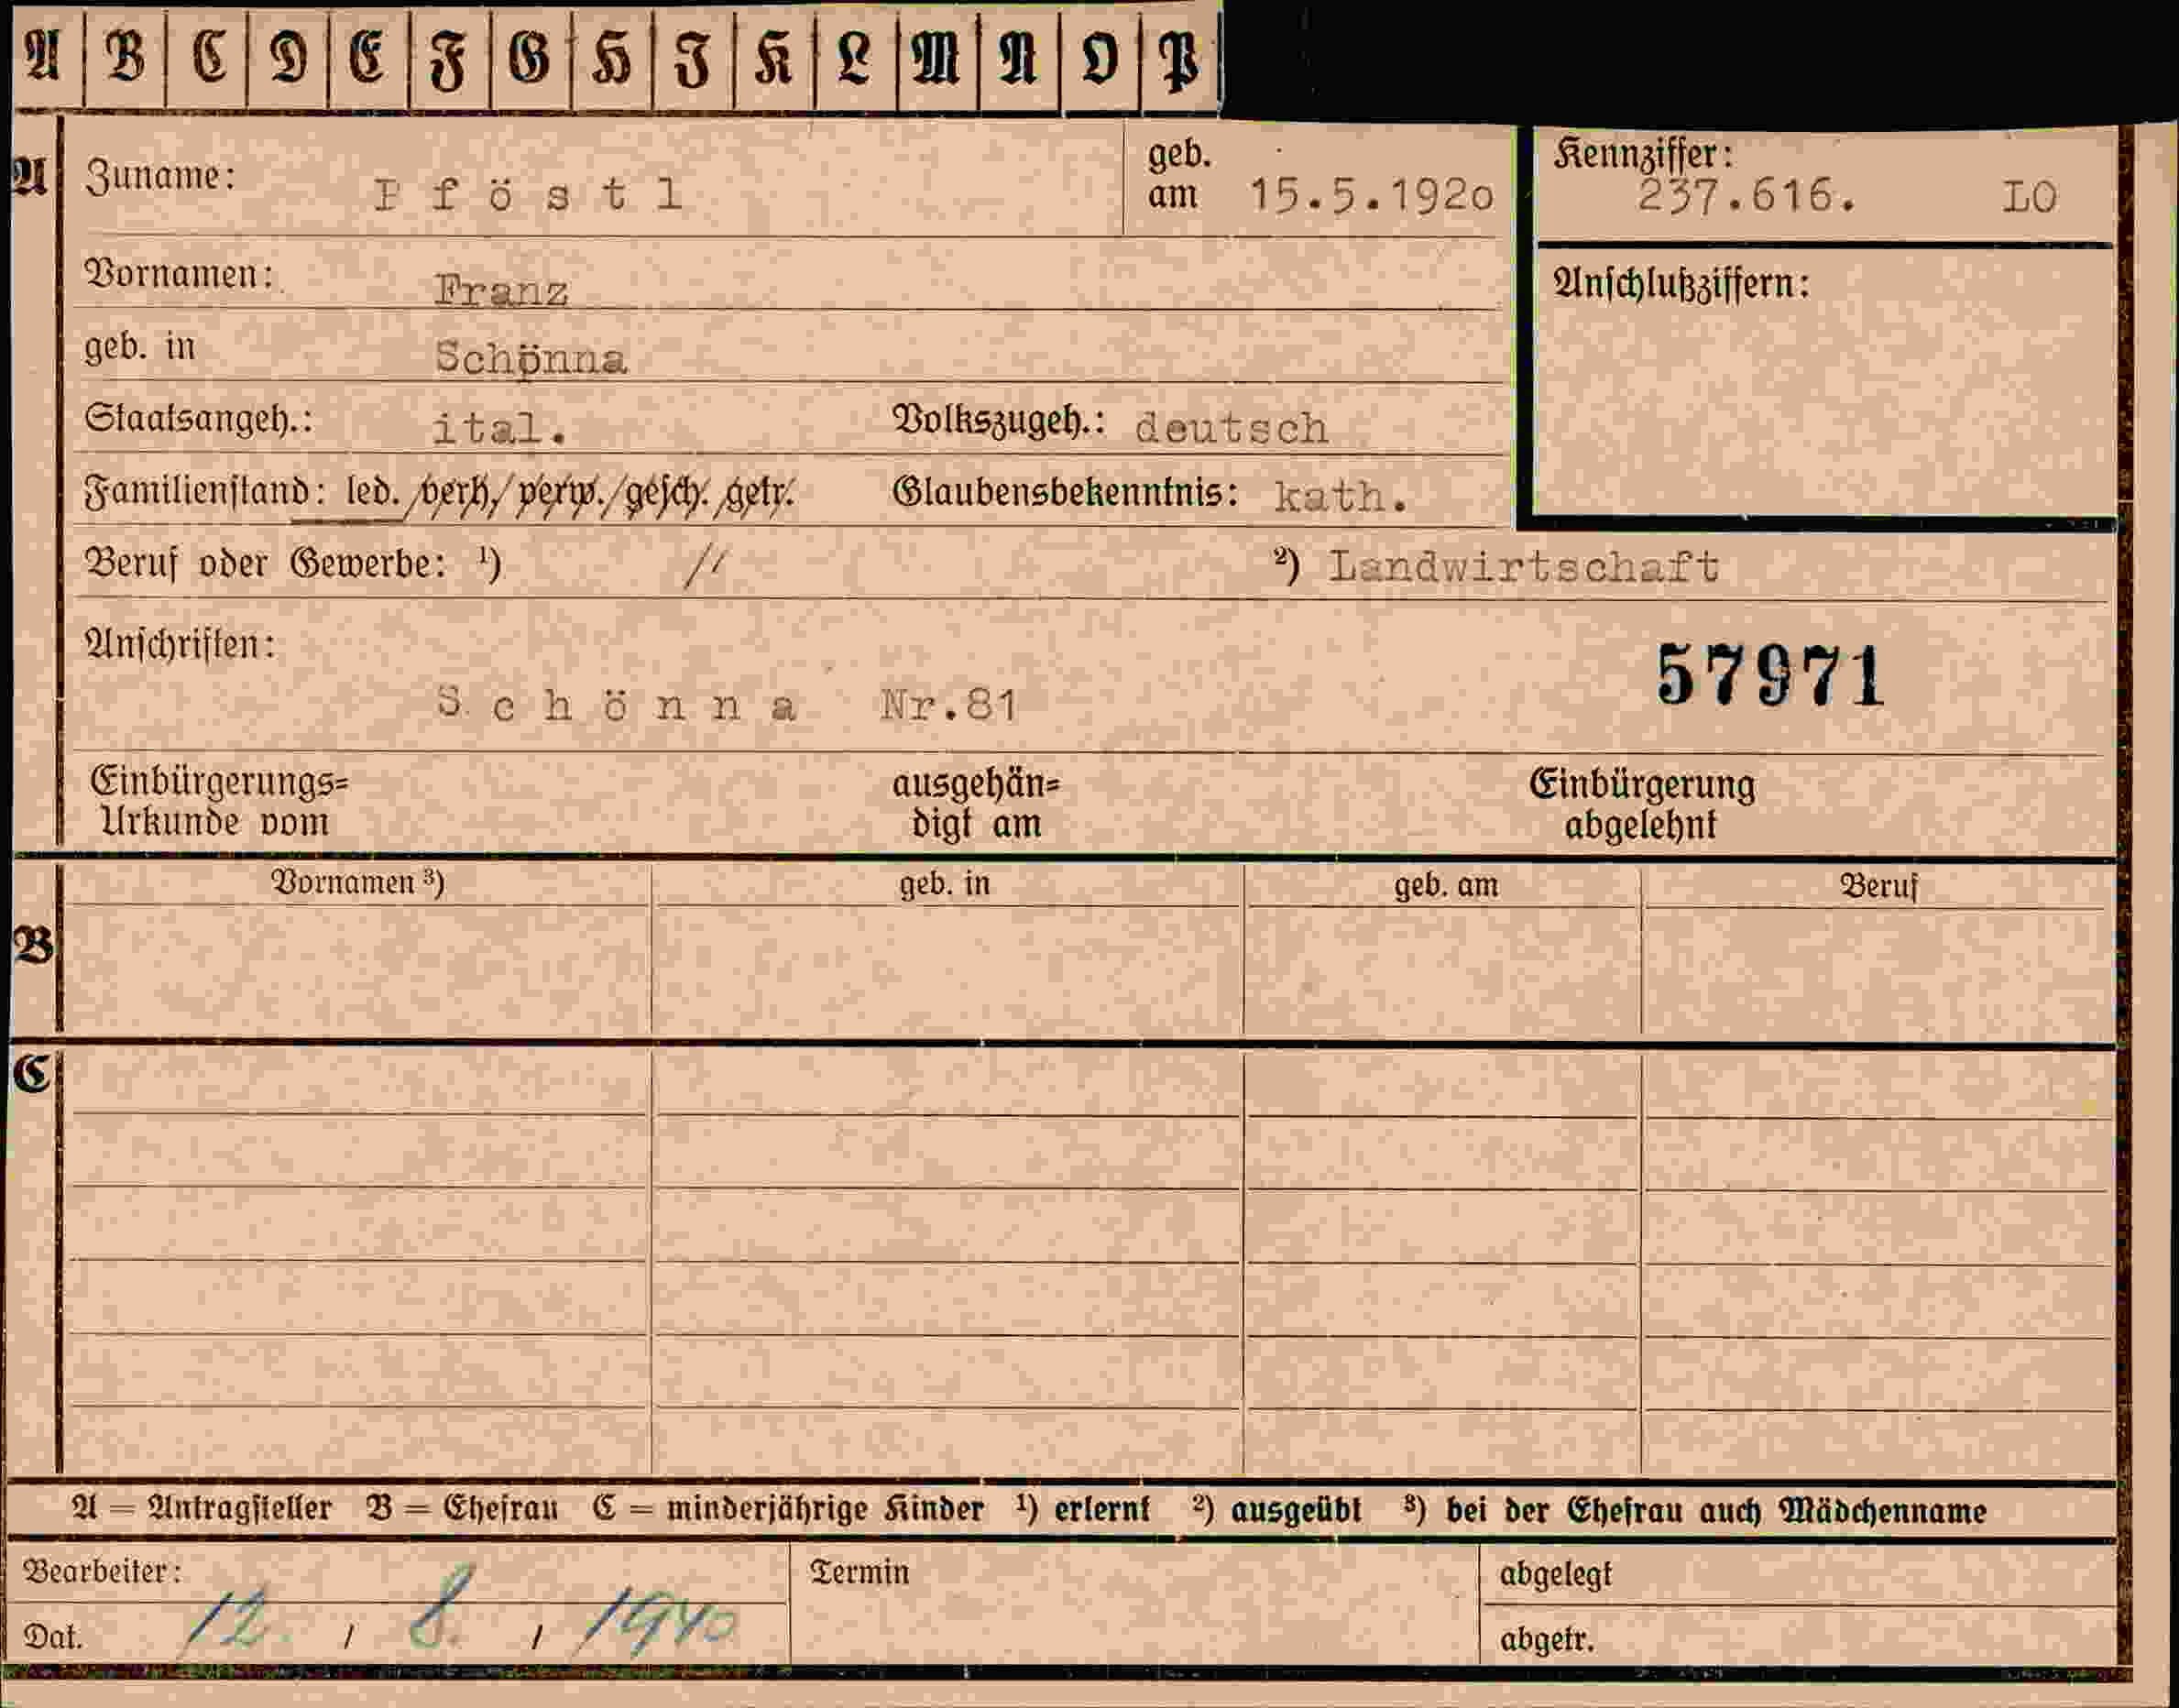 A B C D E F G H I K L M N O P
A Zuname: Pföstl geb. am 15.5.1920 Kennziffer: 237.616. LO
Vornamen: Franz Anschlußziffern:
geb. in Schönna
Staatsangeh.: ital. Volkszugeh.: deutsch
Familienstand: led./verh./verw./gesch./getr. Glaubensbekenntnis: kath.
Beruf oder Gewerbe: ¹) // ²) Landwirtschaft
Anschriften:
57971
Schönna Nr.81
Einbürgerungs= ausgehän= Einbürgerung
Urkunde vom digt am abgelehnt
Vornamen ³) geb. in geb. am Beruf
B
C
A = Antragsteller B = Ehefrau C = minderjährige Kinder ¹) erlernt ²) ausgeübt ³) bei der Ehefrau auch Mädchenname
Bearbeiter: Termin abgelegt
Dat. 12. / 8. / 1940 abgetr.